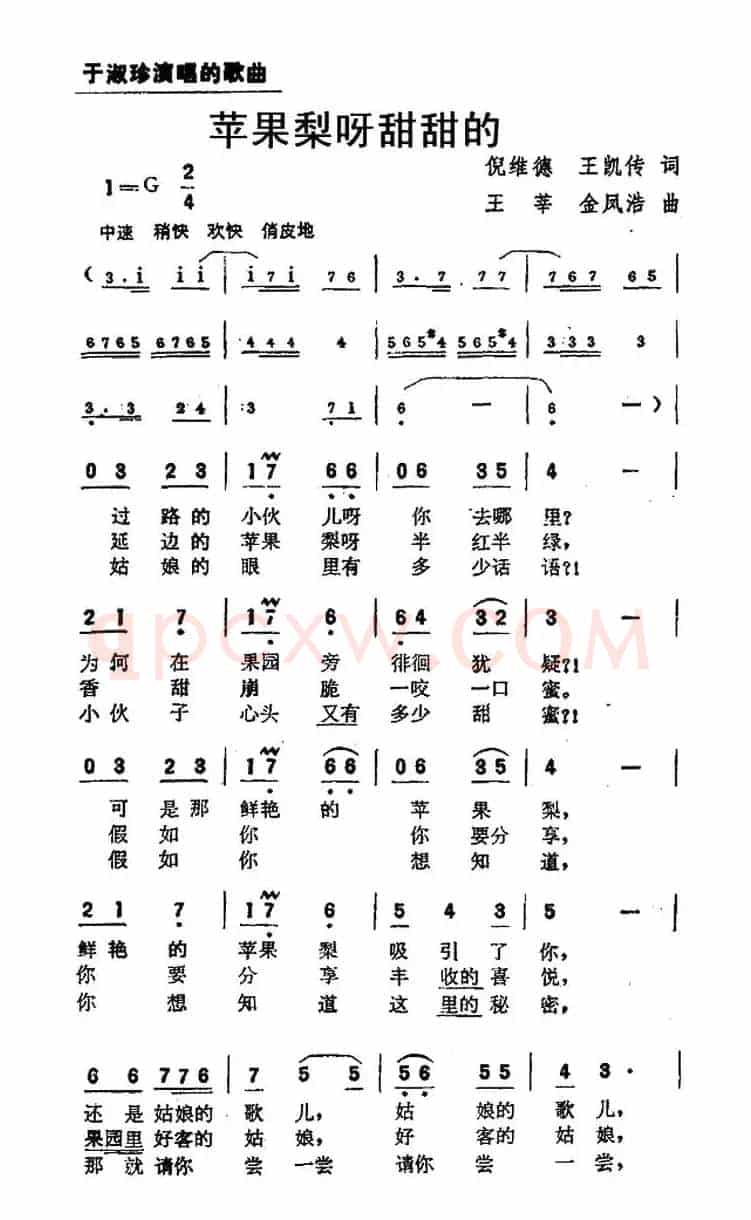 于淑珍演唱的歌曲
苹果梨呀甜甜的
倪维德 王凯传 词
1=G 2/4
王莘 金凤浩 曲
中速 稍快 欢快 俏皮地
(3·i ii | i7i 76 | 3·7 77 | 767 65 |
6765 6765 | 444 4 | 565#4 565#4 | 333 3 |
3·3 24 | 3 71 | 6 — | 6 — ) |
03 23 | 17 66 | 06 35 | 4 — |
过路的小伙儿呀你去哪里?
延边的苹果梨呀半红半绿,
姑娘的眼里有多少话语?!
21 7 | 17 6 | 64 32 | 3 — |
qpcxw.COM
为何在果园旁徘徊犹疑?!
香甜崩脆一咬一口蜜。
小伙子心头又有多少甜蜜?!
03 23 | 17 66 | 06 35 | 4 — |
可是那鲜艳的苹果梨,
假如你你要分享,
假如你想知道,
21 7 | 17 6 | 5 43 | 5 — |
鲜艳的苹果梨吸引了你,
你要分享丰收的喜悦,
你想知道这里的秘密,
66 776 | 7 5 5 | 56 55 | 4 3· |
还是姑娘的歌儿,姑娘的歌儿,
果园里好客的姑娘,好客的姑娘,
那就请你尝一尝请你尝一尝,